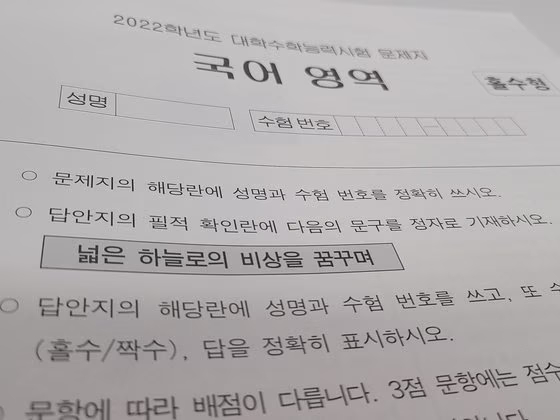 2022학년도 대학수학능력시험 문제지
국어 영역
홀수형
성명
수험 번호
○ 문제지의 해당란에 성명과 수험 번호를 정확히 쓰시오.
○ 답안지의 필적 확인란에 다음의 문구를 정자로 기재하시오.
넓은 하늘로의 비상을 꿈꾸며
○ 답안지의 해당란에 성명과 수험 번호를 쓰고, 또 수
(홀수/짝수), 답을 정확히 표시하시오.
문항에 따라 배점이 다릅니다. 3점 문항에는 점수